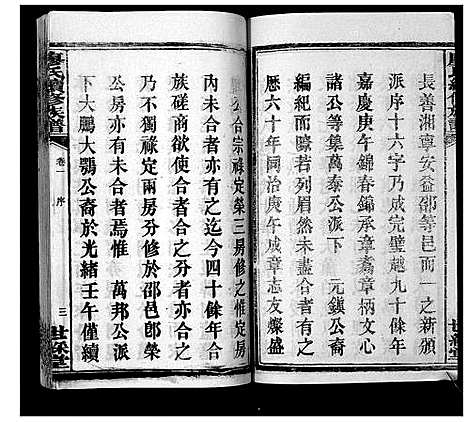 長善湘寧安益邵等邑而一之新頒
派序十六字乃成完璧越九十餘年
嘉慶庚午錦春錦承章肅章柄文心
諸公等集萬泰公派下　元鎮公裔
編紀而𤾉若列眉然未盡合者有
歷六十年同治庚午成章志友燦盛
公合宗祿定榮三房修之惟定房
內未合者亦有之迄今四十餘年合
族磋商欲使合者合之分者亦合之
乃不獨祿定兩房分修於邵邑卽榮
公房亦有未合者焉惟　萬邦公派
下大鵬大鶚公裔於光緒壬午僅續
廖氏續修族譜
卷一　序
三
世綵堂